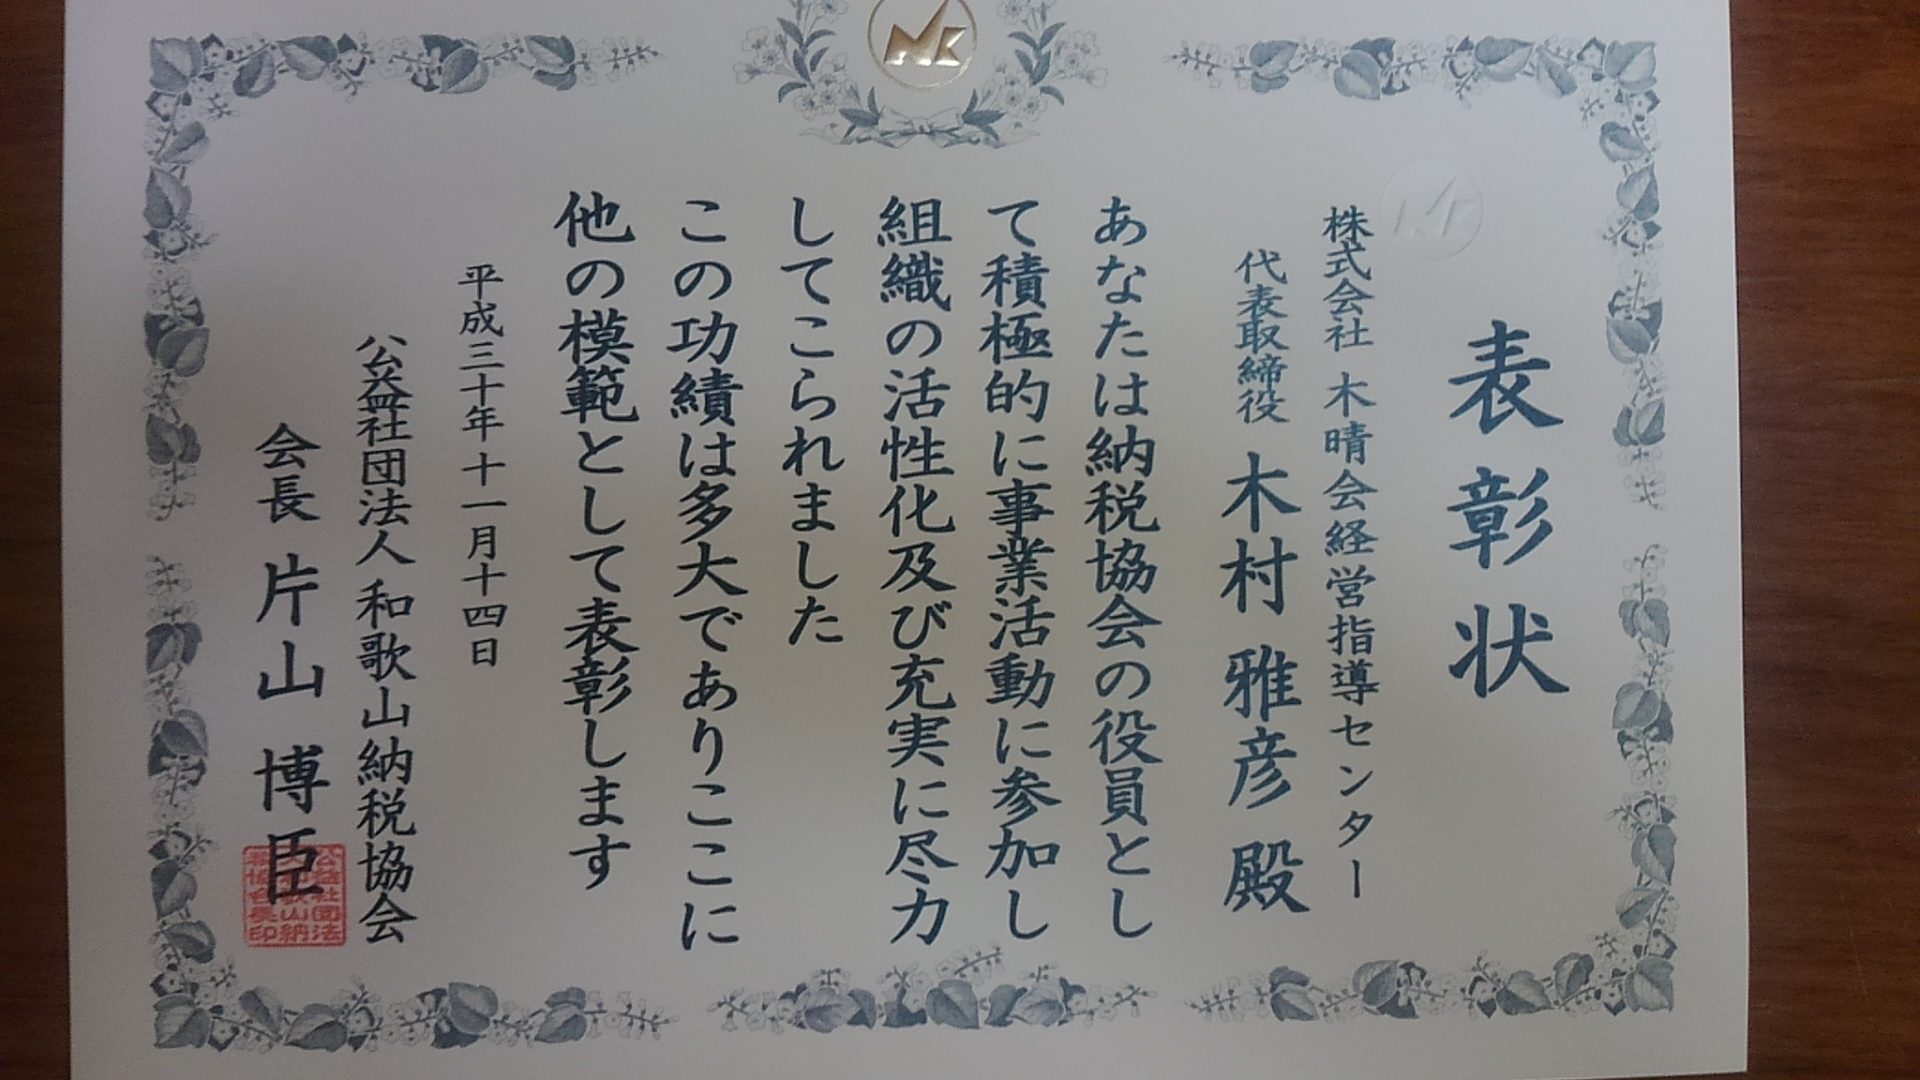 表彰状
株式会社 木晴会経営指導センター
代表取締役 木村 雅彦 殿
あなたは納税協会の役員とし
て積極的に事業活動に参加し
組織の活性化及び充実に尽力
してこられました
この功績は多大でありここに
他の模範として表彰します
平成三十年十一月十四日
公益社団法人 和歌山納税協会
会長 片山 博臣